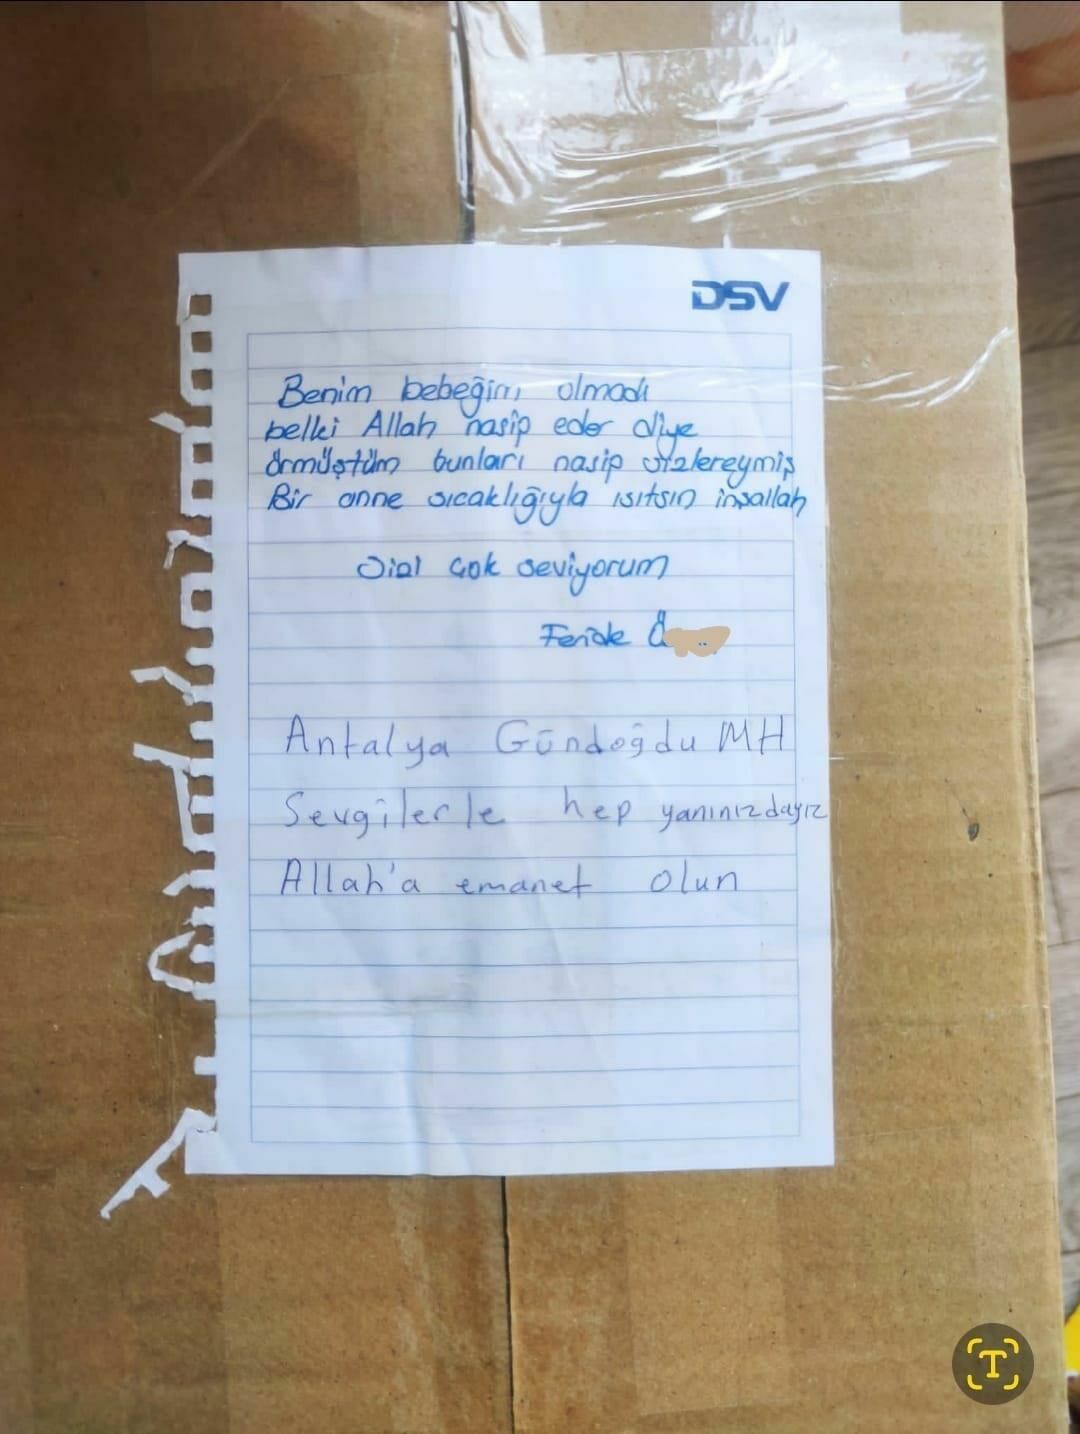 DSV
Benim bebeğim olmadı
belki Allah nasip eder diye
örmüştüm bunları nasip sizlereymiş
Bir anne sıcaklığıyla ısıtsın inşallah
Sizi çok seviyorum
Feride Ö
Antalya Gündoğdu MH
Sevgilerle hep yanınızdayız
Allah'a emanet olun